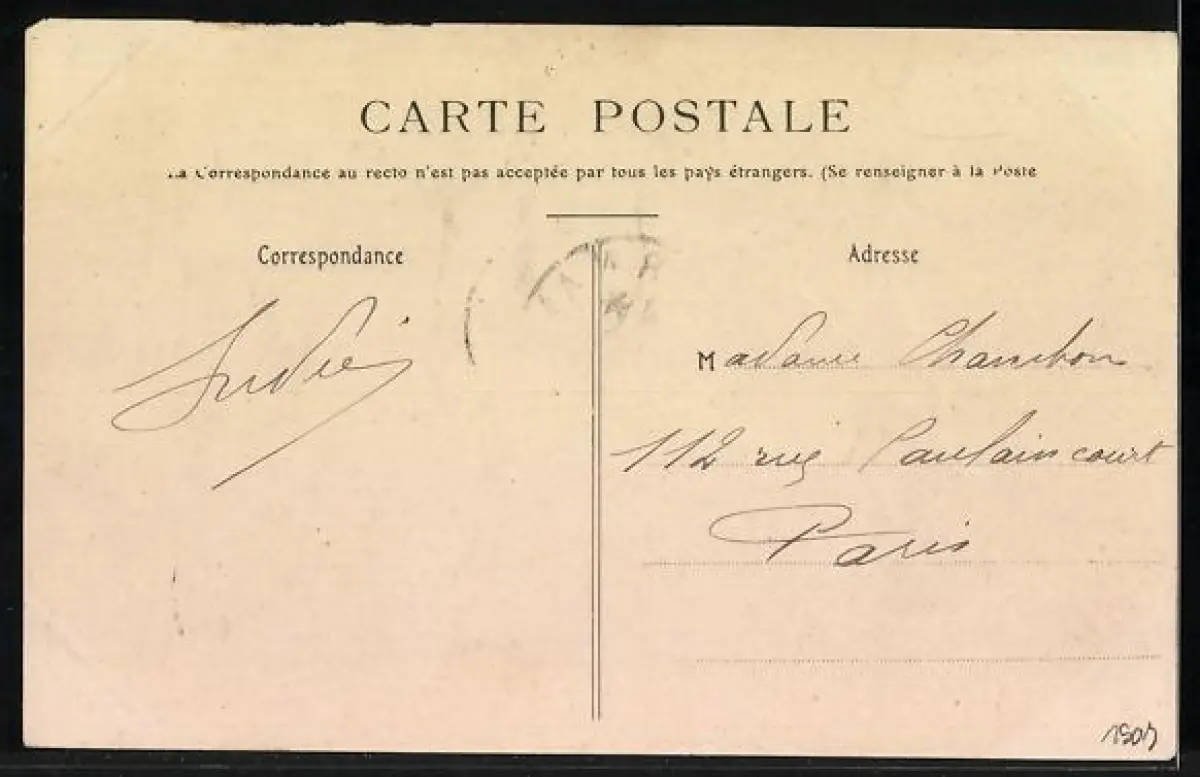 CARTE POSTALE
La Correspondance au recto n'est pas acceptée par tous les pays étrangers. (Se renseigner à la Poste
Correspondance
Adresse
Madame Chambon
112 rue Caulaincourt
Paris